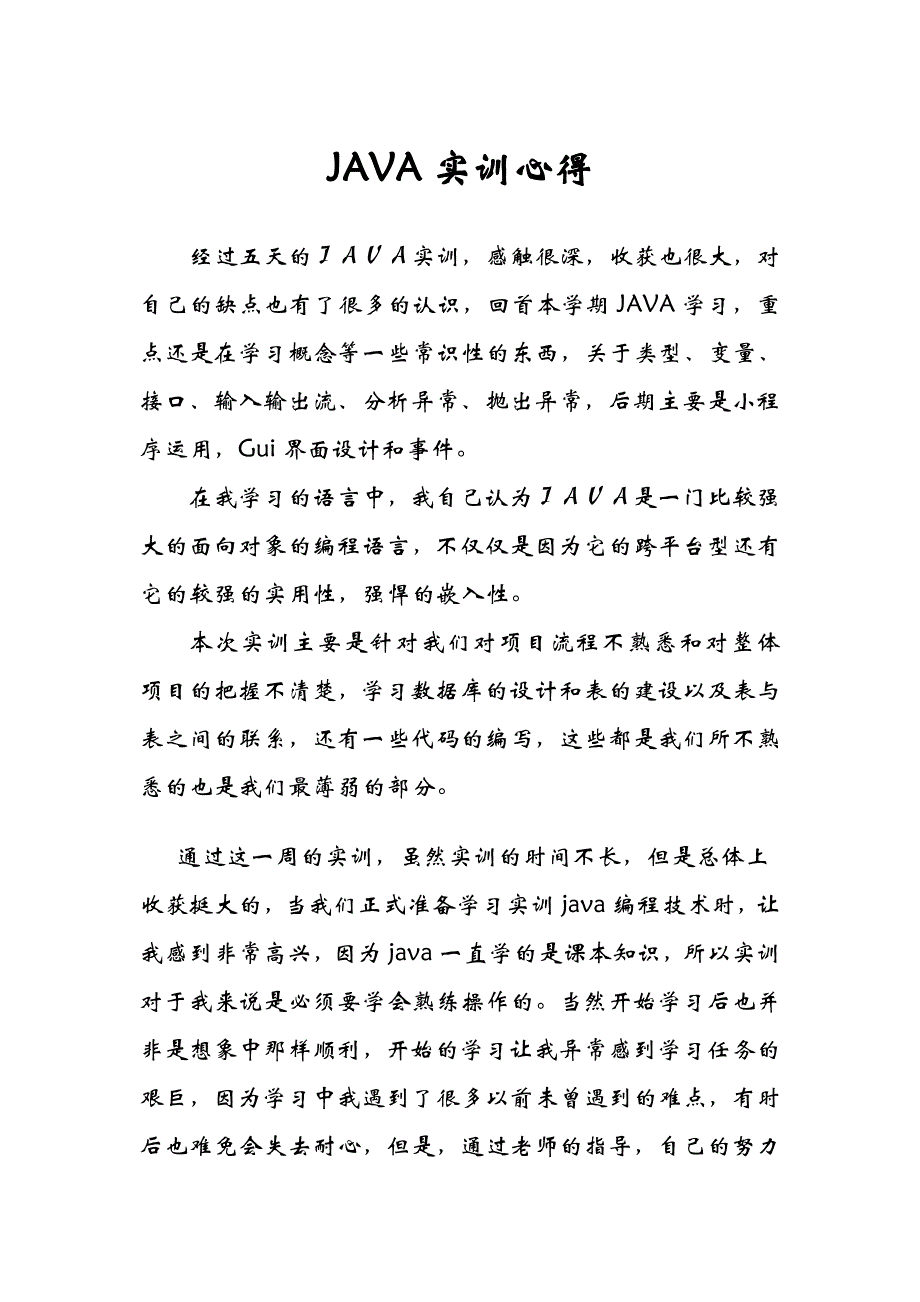 JAVA 实训心得
经过五天的JAVA实训，感触很深，收获也很大，对
自己的缺点也有了很多的认识，回首本学期 JAVA 学习，重
点还是在学习概念等一些常识性的东西，关于类型、变量、
接口、输入输出流、分析异常、抛出异常，后期主要是小程
序运用，Gui 界面设计和事件。
在我学习的语言中，我自己认为JAVA是一门比较强
大的面向对象的编程语言，不仅仅是因为它的跨平台型还有
它的较强的实用性，强悍的嵌入性。
本次实训主要是针对我们对项目流程不熟悉和对整体
项目的把握不清楚，学习数据库的设计和表的建设以及表与
表之间的联系，还有一些代码的编写，这些都是我们所不熟
悉的也是我们最薄弱的部分。
通过这一周的实训，虽然实训的时间不长，但是总体上
收获挺大的，当我们正式准备学习实训 java 编程技术时，让
我感到非常高兴，因为 java 一直学的是课本知识，所以实训
对于我来说是必须要学会熟练操作的。当然开始学习后也并
非是想象中那样顺利，开始的学习让我异常感到学习任务的
艰巨，因为学习中我遇到了很多以前未曾遇到的难点，有时
后也难免会失去耐心，但是，通过老师的指导，自己的努力